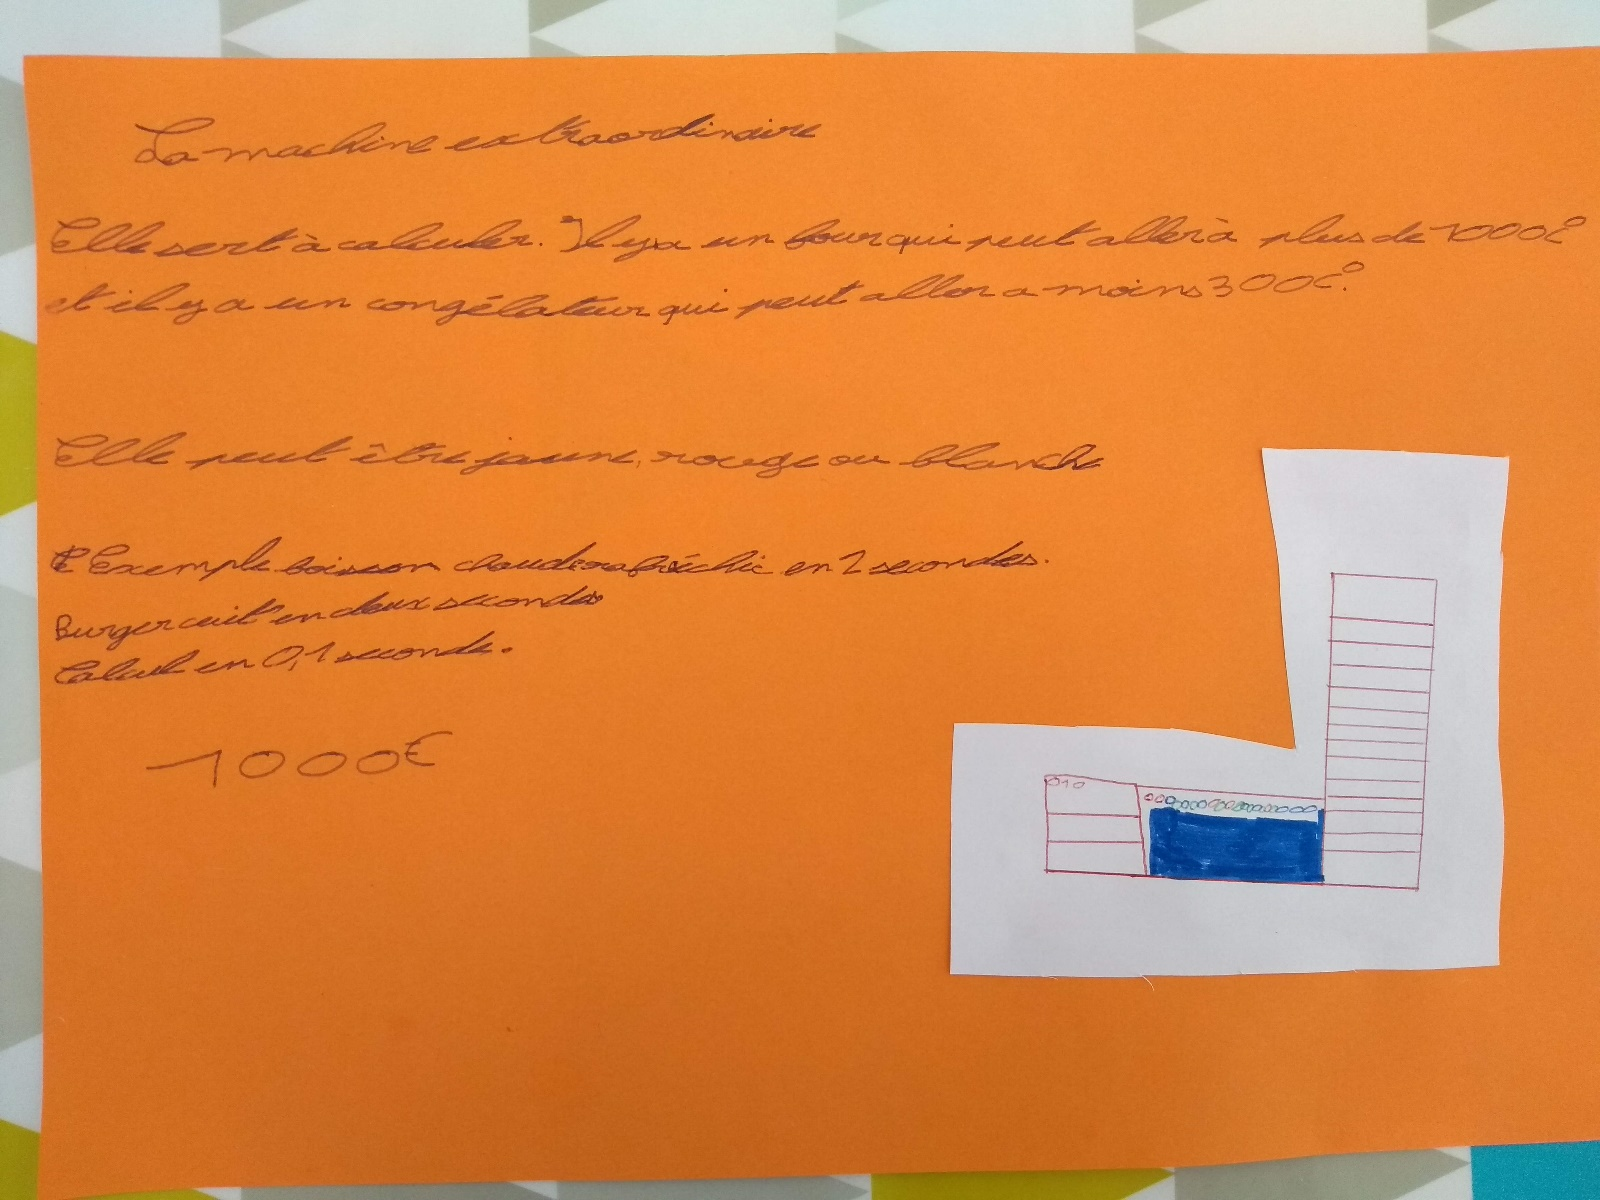 La machine extraordinaire
Elle sert à calculer. Il y a un four qui peut aller à plus de 1000C°
et il y a un congélateur qui peut aller a moins 300C°.
Elle peut être jaune, rouge ou blanch
Exemple boisson chaude rafréchie en 2 secondes.
Burger cuit en deux secondes
Calcul en 0,1 seconde.
1000€
010